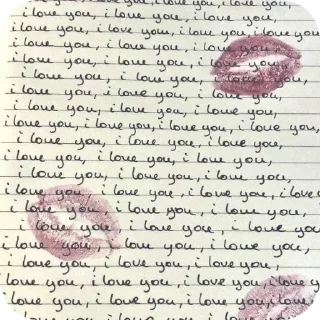 love you, i love you, i love you,
love you, i love you, i love you,
i love you, i love you, i love you, i love you,
i love you, i love you, i love you,
love you, i love you, i love you,
i love you, i love you, i love you,
i love you, i love you, i love you,
i love you, i love you, i love you,
i love you, i love you, i love you, i love you,
i love you, i love you, i love you,
i love you, i love you, i love you,
i love you, i love you, i love you,
i love you, i love you, i love you, i love
i love you, i love you, i love you,
i love you, i love you, i love you
i love you, i love you, i love you,
i love you, i love you, i love you,
i love you, i love you, i love you, i love you,
love you, i love you, i love you, i love you,
love you, i love you, i love you,